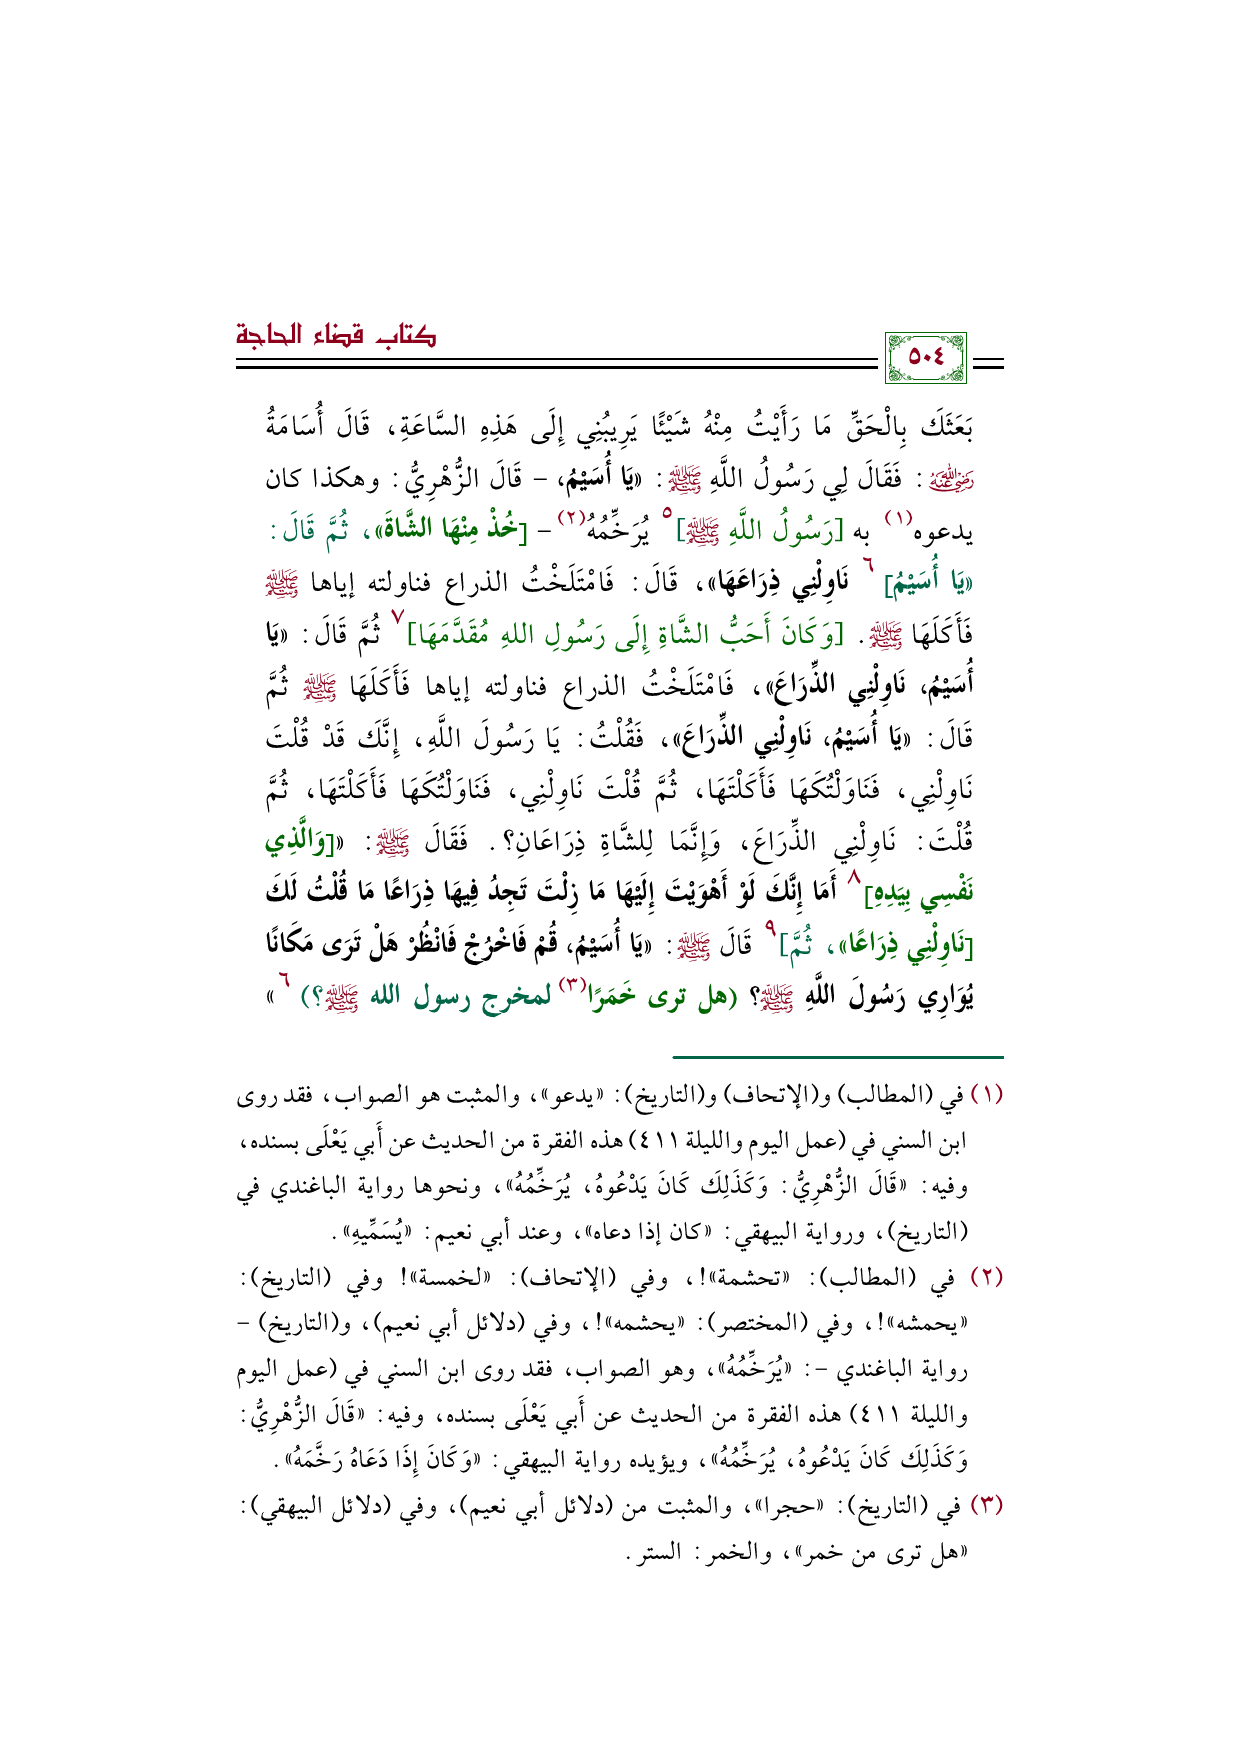 كتاب قضاء الحاجة
٥٠٤
بَعَثَكَ بِالْحَقِّ مَا رَأَيْتُ مِنْهُ شَيْئًا يَرِيبُنِي إِلَى هَذِهِ السَّاعَةِ، قَالَ أُسَامَةُ
رضي الله عنه: فَقَالَ لِي رَسُولُ اللَّهِ ﷺ: «يَا أُسَيْمُ، - قَالَ الزُّهْرِيُّ: وهكذا كان
يدعوه(١) به [رَسُولُ اللَّهِ ﷺ]٥ يُرَخِّمُهُ(٢)- [خُذْ مِنْهَا الشَّاةَ»، ثُمَّ قَالَ:
«يَا أُسَيْمُ]٦ نَاوِلْنِي ذِرَاعَهَا»، قَالَ: فَامْتَلَخْتُ الذراع فناولته إياها ﷺ
فَأَكَلَهَا ﷺ. [وَكَانَ أَحَبُّ الشَّاةِ إِلَى رَسُولِ اللهِ مُقَدَّمَهَا]٧ ثُمَّ قَالَ: «يَا
أُسَيْمُ، نَاوِلْنِي الذِّرَاعَ»، فَامْتَلَخْتُ الذراع فناولته إياها فَأَكَلَهَا ﷺ ثُمَّ
قَالَ: «يَا أُسَيْمُ، نَاوِلْنِي الذِّرَاعَ»، فَقُلْتُ: يَا رَسُولَ اللَّهِ، إِنَّكَ قَدْ قُلْتَ
نَاوِلْنِي، فَنَاوَلْتُكَهَا فَأَكَلْتَهَا، ثُمَّ قُلْتَ نَاوِلْنِي، فَنَاوَلْتُكَهَا فَأَكَلْتَهَا، ثُمَّ
قُلْتَ: نَاوِلْنِي الذِّرَاعَ، وَإِنَّمَا لِلشَّاةِ ذِرَاعَانِ؟. فَقَالَ ﷺ: «[وَالَّذِي
نَفْسِي بِيَدِهِ]٨ أَمَا إِنَّكَ لَوْ أَهْوَيْتَ إِلَيْهَا مَا زِلْتَ تَجِدُ فِيهَا ذِرَاعًا مَا قُلْتُ لَكَ
[نَاوِلْنِي ذِرَاعًا»، ثُمَّ]٩ قَالَ ﷺ: «يَا أُسَيْمُ، قُمْ فَاخْرُجْ فَانْظُرْ هَلْ تَرَى مَكَانًا
يُوَارِي رَسُولَ اللَّهِ ﷺ؟ (هل ترى خَمَرًا(٣) لمخرج رسول الله ﷺ؟)٦ »
(١) في (المطالب) و(الإتحاف) و(التاريخ): «يدعو»، والمثبت هو الصواب، فقد روى
ابن السني في (عمل اليوم والليلة ٤١١) هذه الفقرة من الحديث عن أَبي يَعْلَى بسنده،
وفيه: «قَالَ الزُّهْرِيُّ: وَكَذَلِكَ كَانَ يَدْعُوهُ، يُرَخِّمُهُ»، ونحوها رواية الباغندي في
(التاريخ)، ورواية البيهقي: «كان إذا دعاه»، وعند أبي نعيم: «يُسَمِّيهِ».
(٢) في (المطالب): «تحشمة»!، وفي (الإتحاف): «لخمسة»! وفي (التاريخ):
«يحمشه»!، وفي (المختصر): «يحشمه»!، وفي (دلائل أبي نعيم)، و(التاريخ) -
رواية الباغندي -: «يُرَخِّمُهُ»، وهو الصواب، فقد روى ابن السني في (عمل اليوم
والليلة ٤١١) هذه الفقرة من الحديث عن أَبي يَعْلَى بسنده، وفيه: «قَالَ الزُّهْرِيُّ:
وَكَذَلِكَ كَانَ يَدْعُوهُ، يُرَخِّمُهُ»، ويؤيده رواية البيهقي: «وَكَانَ إِذَا دَعَاهُ رَخَّمَهُ».
(٣) في (التاريخ): «حجرا»، والمثبت من (دلائل أبي نعيم)، وفي (دلائل البيهقي):
«هل ترى من خمر»، والخمر: الستر.